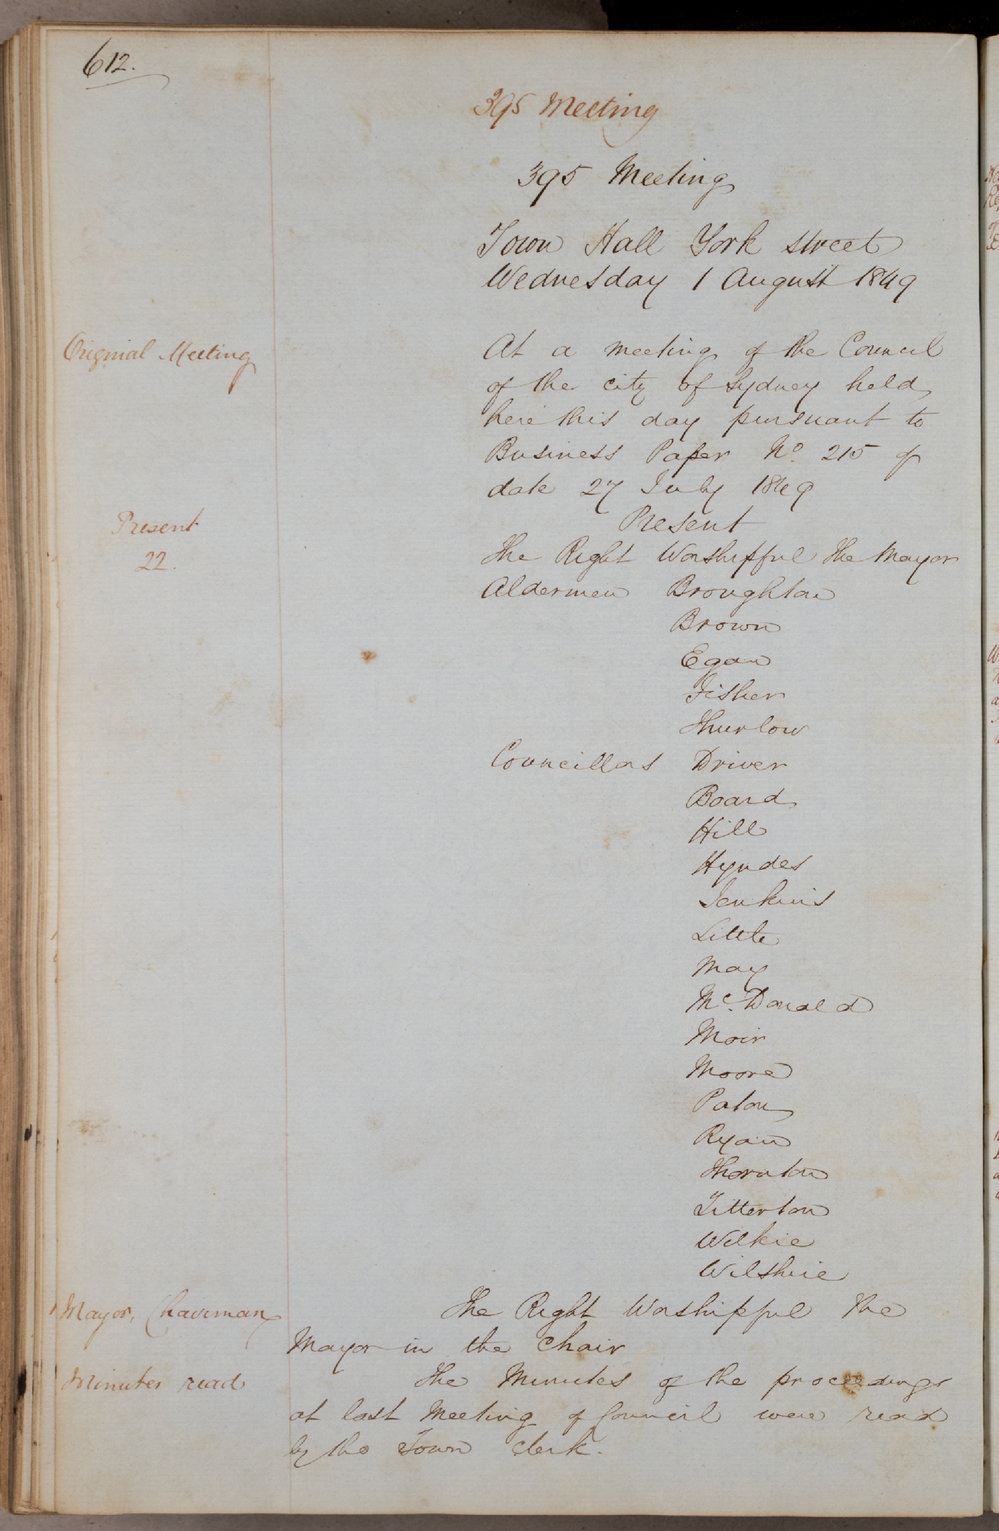 612.
395 Meeting
395 Meeting
Town Hall York street
Wednesday 1 August 1849
Original Meeting
At a meeting of the Council
of the city of Sydney held
here this day pursuant to
Business Paper No. 215 of
date 27 July 1849
Present
22.
Present
The Right Worshipful the Mayor
Aldermen Broughton
Brown
Egan
Fisher
Thurlow
Councillors Driver
Board
Hill
Hyndes
Jenkins
Little
May
McDonald
Moir
Moore
Paton
Ryan
Thornton
Titterton
Wilkie
Wilshire
Mayor, Chairman
The Right Worshipful the
Mayor in the Chair
Minutes read
The Minutes of the proceedings
at last Meeting of Council were read
by the Town Clerk.